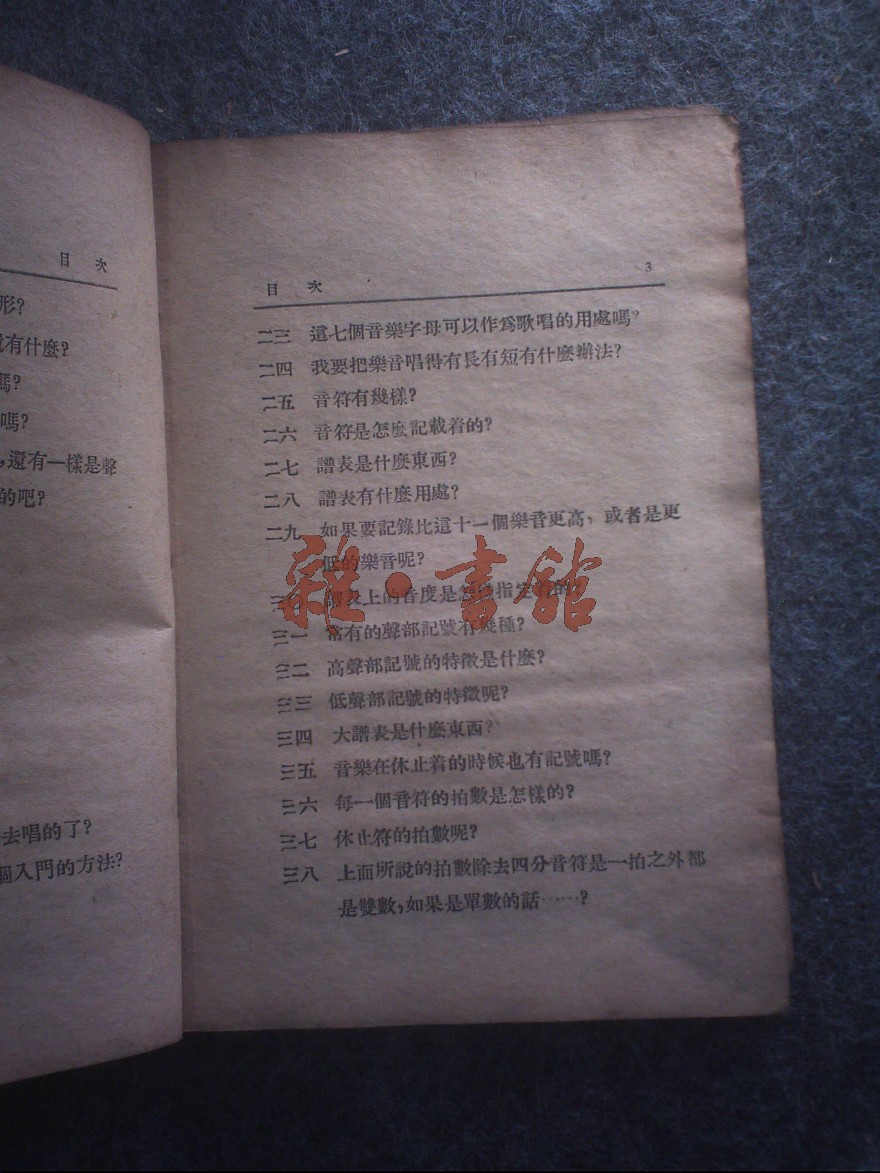 目 次
形?
有什麼?
嗎?
嗎?
,還有一樣是聲
的吧?
去唱的了?
個入門的方法?
目 次 3
二三 這七個音樂字母可以作爲歌唱的用處嗎?
二四 我要把樂音唱得有長有短有什麼辦法?
二五 音符有幾樣?
二六 音符是怎麼記載着的?
二七 譜表是什麼東西?
二八 譜表有什麼用處?
二九 如果要記錄比這十一個樂音更高,或者是更
低的樂音呢?
三〇 譜表上的音度是怎樣指定着的?
三一 常有的聲部記號有幾種?
三二 高聲部記號的特徵是什麼?
三三 低聲部記號的特徵呢?
三四 大譜表是什麼東西?
三五 音樂在休止着的時候也有記號嗎?
三六 每一個音符的拍數是怎樣的?
三七 休止符的拍數呢?
三八 上面所說的拍數除去四分音符是一拍之外都
是雙數,如果是單數的話……?
雜·書館